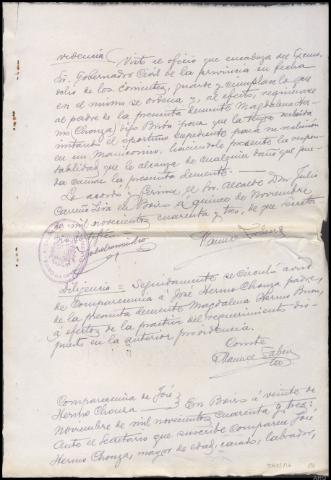 videncia / Visto el oficio que encabeza del Excmo.
Sr. Gobernador Civil de la provincia en fecha
de los corrientes, guárdese y cúmplase lo que
en el mismo se ordena y, al efecto, requiérase
al padre de la presunta demente Magdalena Her-
mo Chouza, para que la tenga
instruido el oportuno expediente para su reclusión
en un Manicomio, haciéndole presente la respon-
sabilidad que le alcanza de cualquier daño que pue-
da causar la presunta demente.
Lo acordó y firma el Sr. Alcalde Don Julio
de Boiro a quince de Noviembre
de mil novecientos cuarenta y tres, de que
Diligencia = Seguidamente se circuló
de comparecencia á José Hermo Chouza padre
de la presunta demente Magdalena Hermo
á efectos de la práctica del requerimiento dis-
puesto en la anterior providencia.
Conste
Comparecencia de José
Hermo Chouza / En Boiro á veinte de
Noviembre de mil novecientos cuarenta y tres:
Ante el Secretario que suscribe comparece José
Hermo Chouza, mayor de edad, casado, labrador,